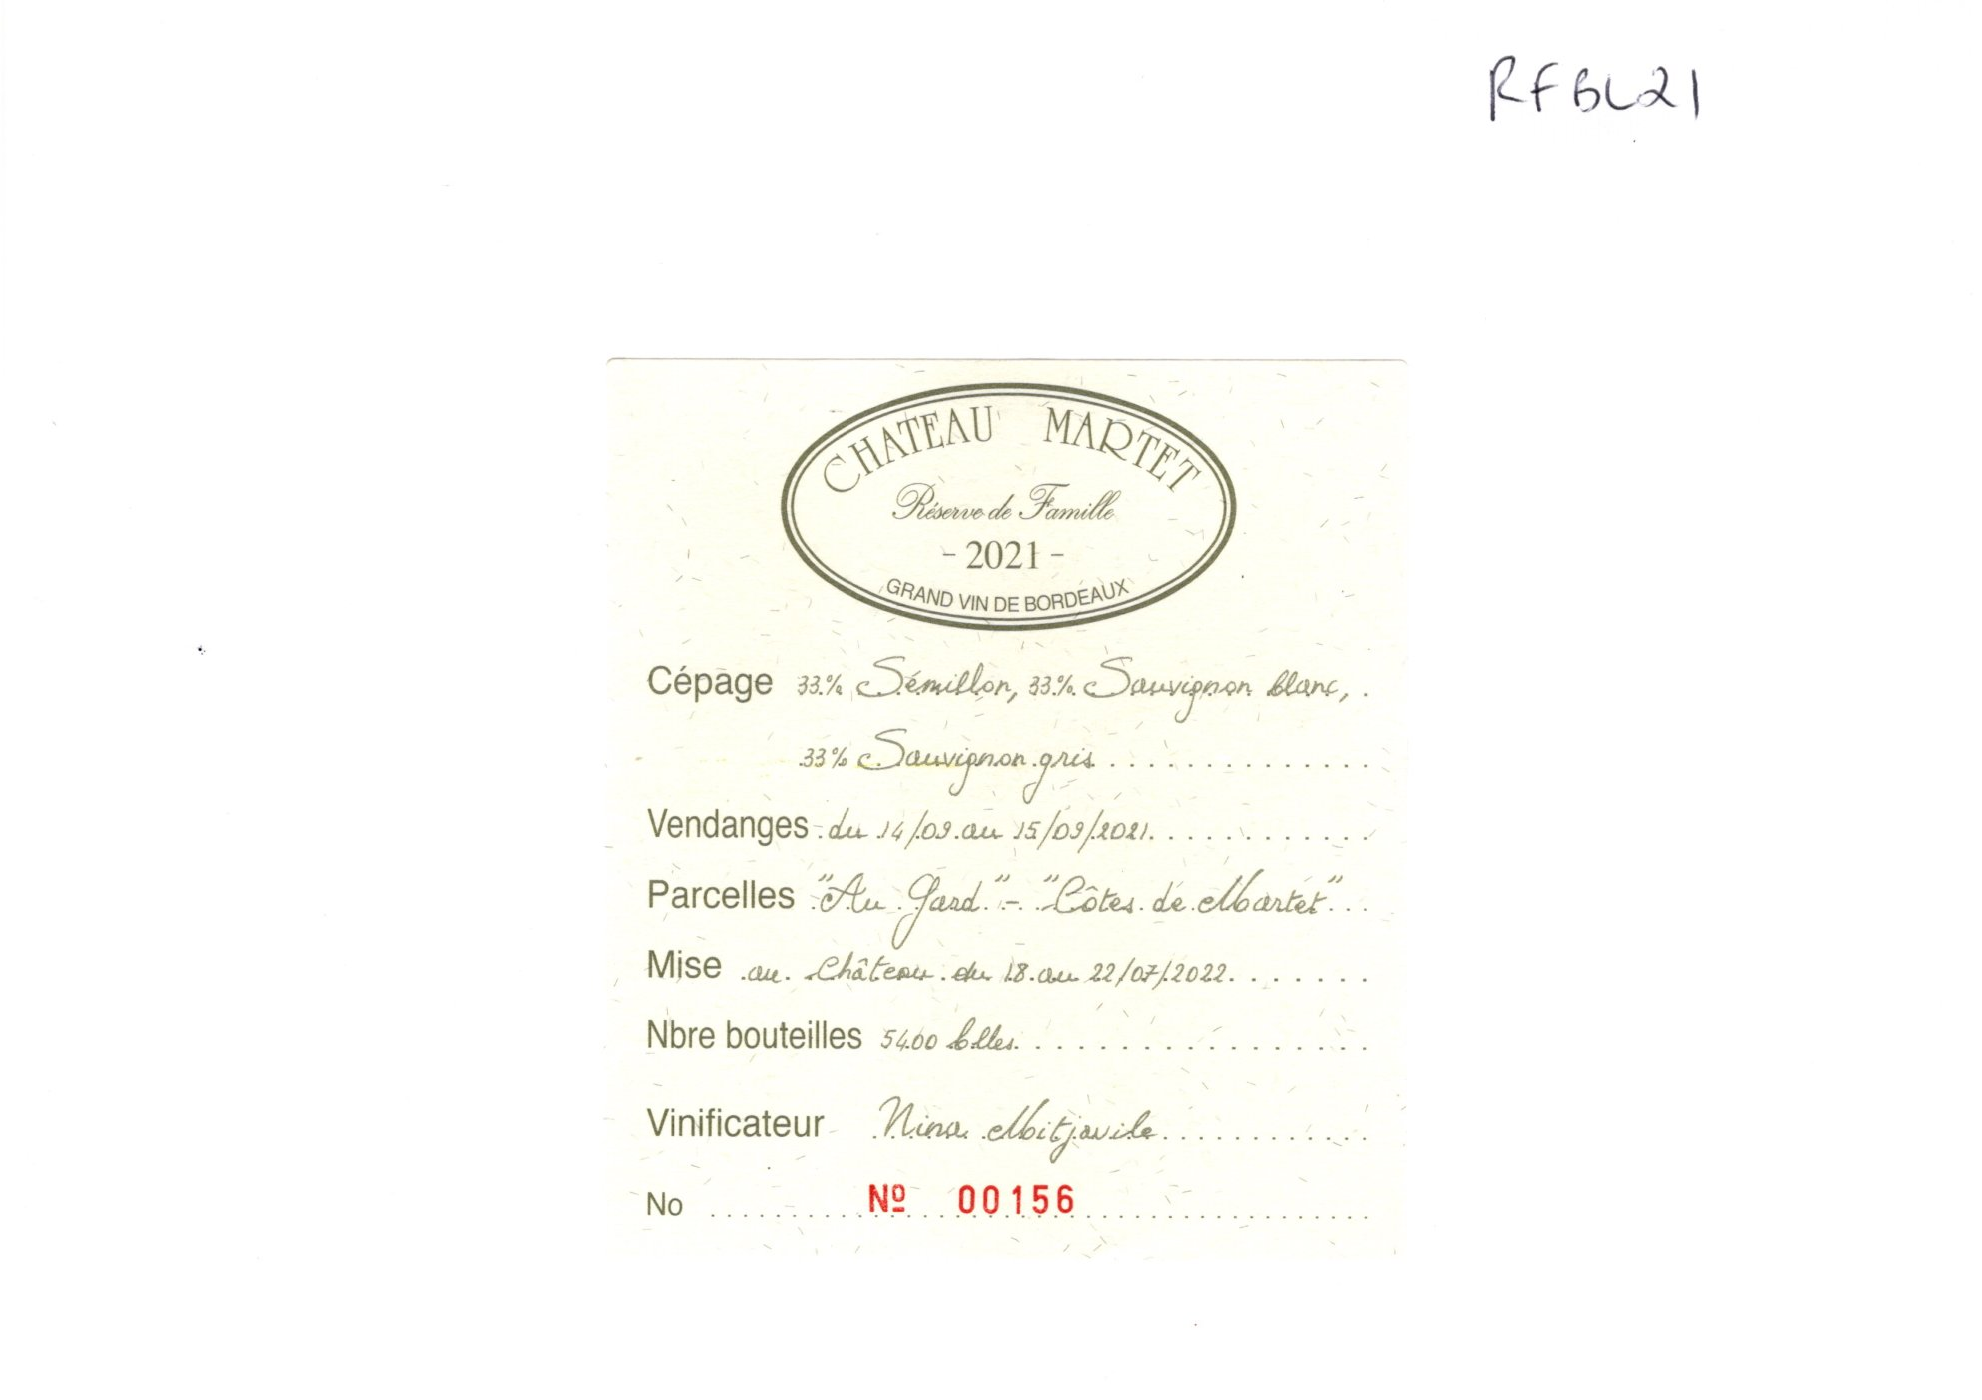 RFBL21
CHATEAU MARTET
Réserve de Famille
- 2021 -
GRAND VIN DE BORDEAUX
Cépage 33% Sémillon, 33% Sauvignon blanc,
33% Sauvignon gris
Vendanges du 14/09 au 15/09/2021
Parcelles "Au Gard" - "Côtes de Martet"
Mise au Château du 18 au 22/07/2022
Nbre bouteilles 5400 blles
Vinificateur Nina Mitjavile
No Nº 00156